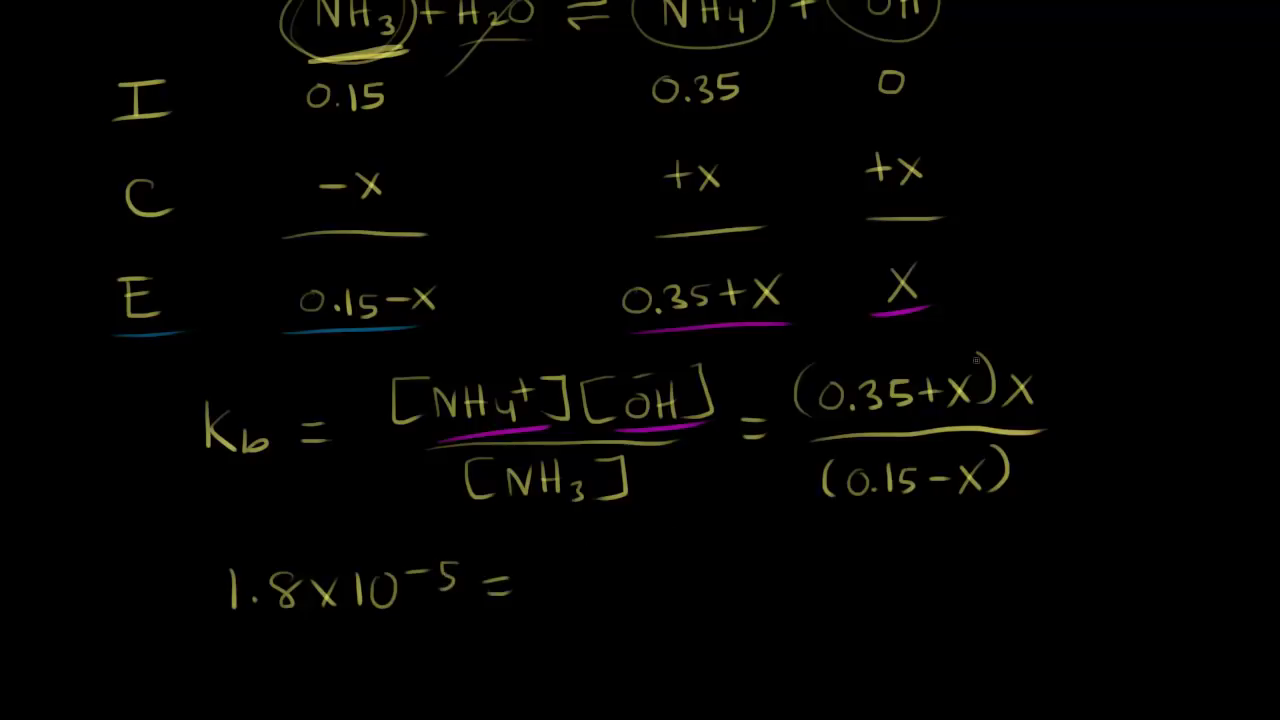 NH₃ + H₂O ⇌ NH₄⁺ + OH
I 0.15 0.35 0
C -X +X +X
E 0.15-X 0.35+X X
Kb = [NH₄⁺][OH⁻] / [NH₃] = (0.35+X)X / (0.15-X)
1.8x10⁻⁵ =